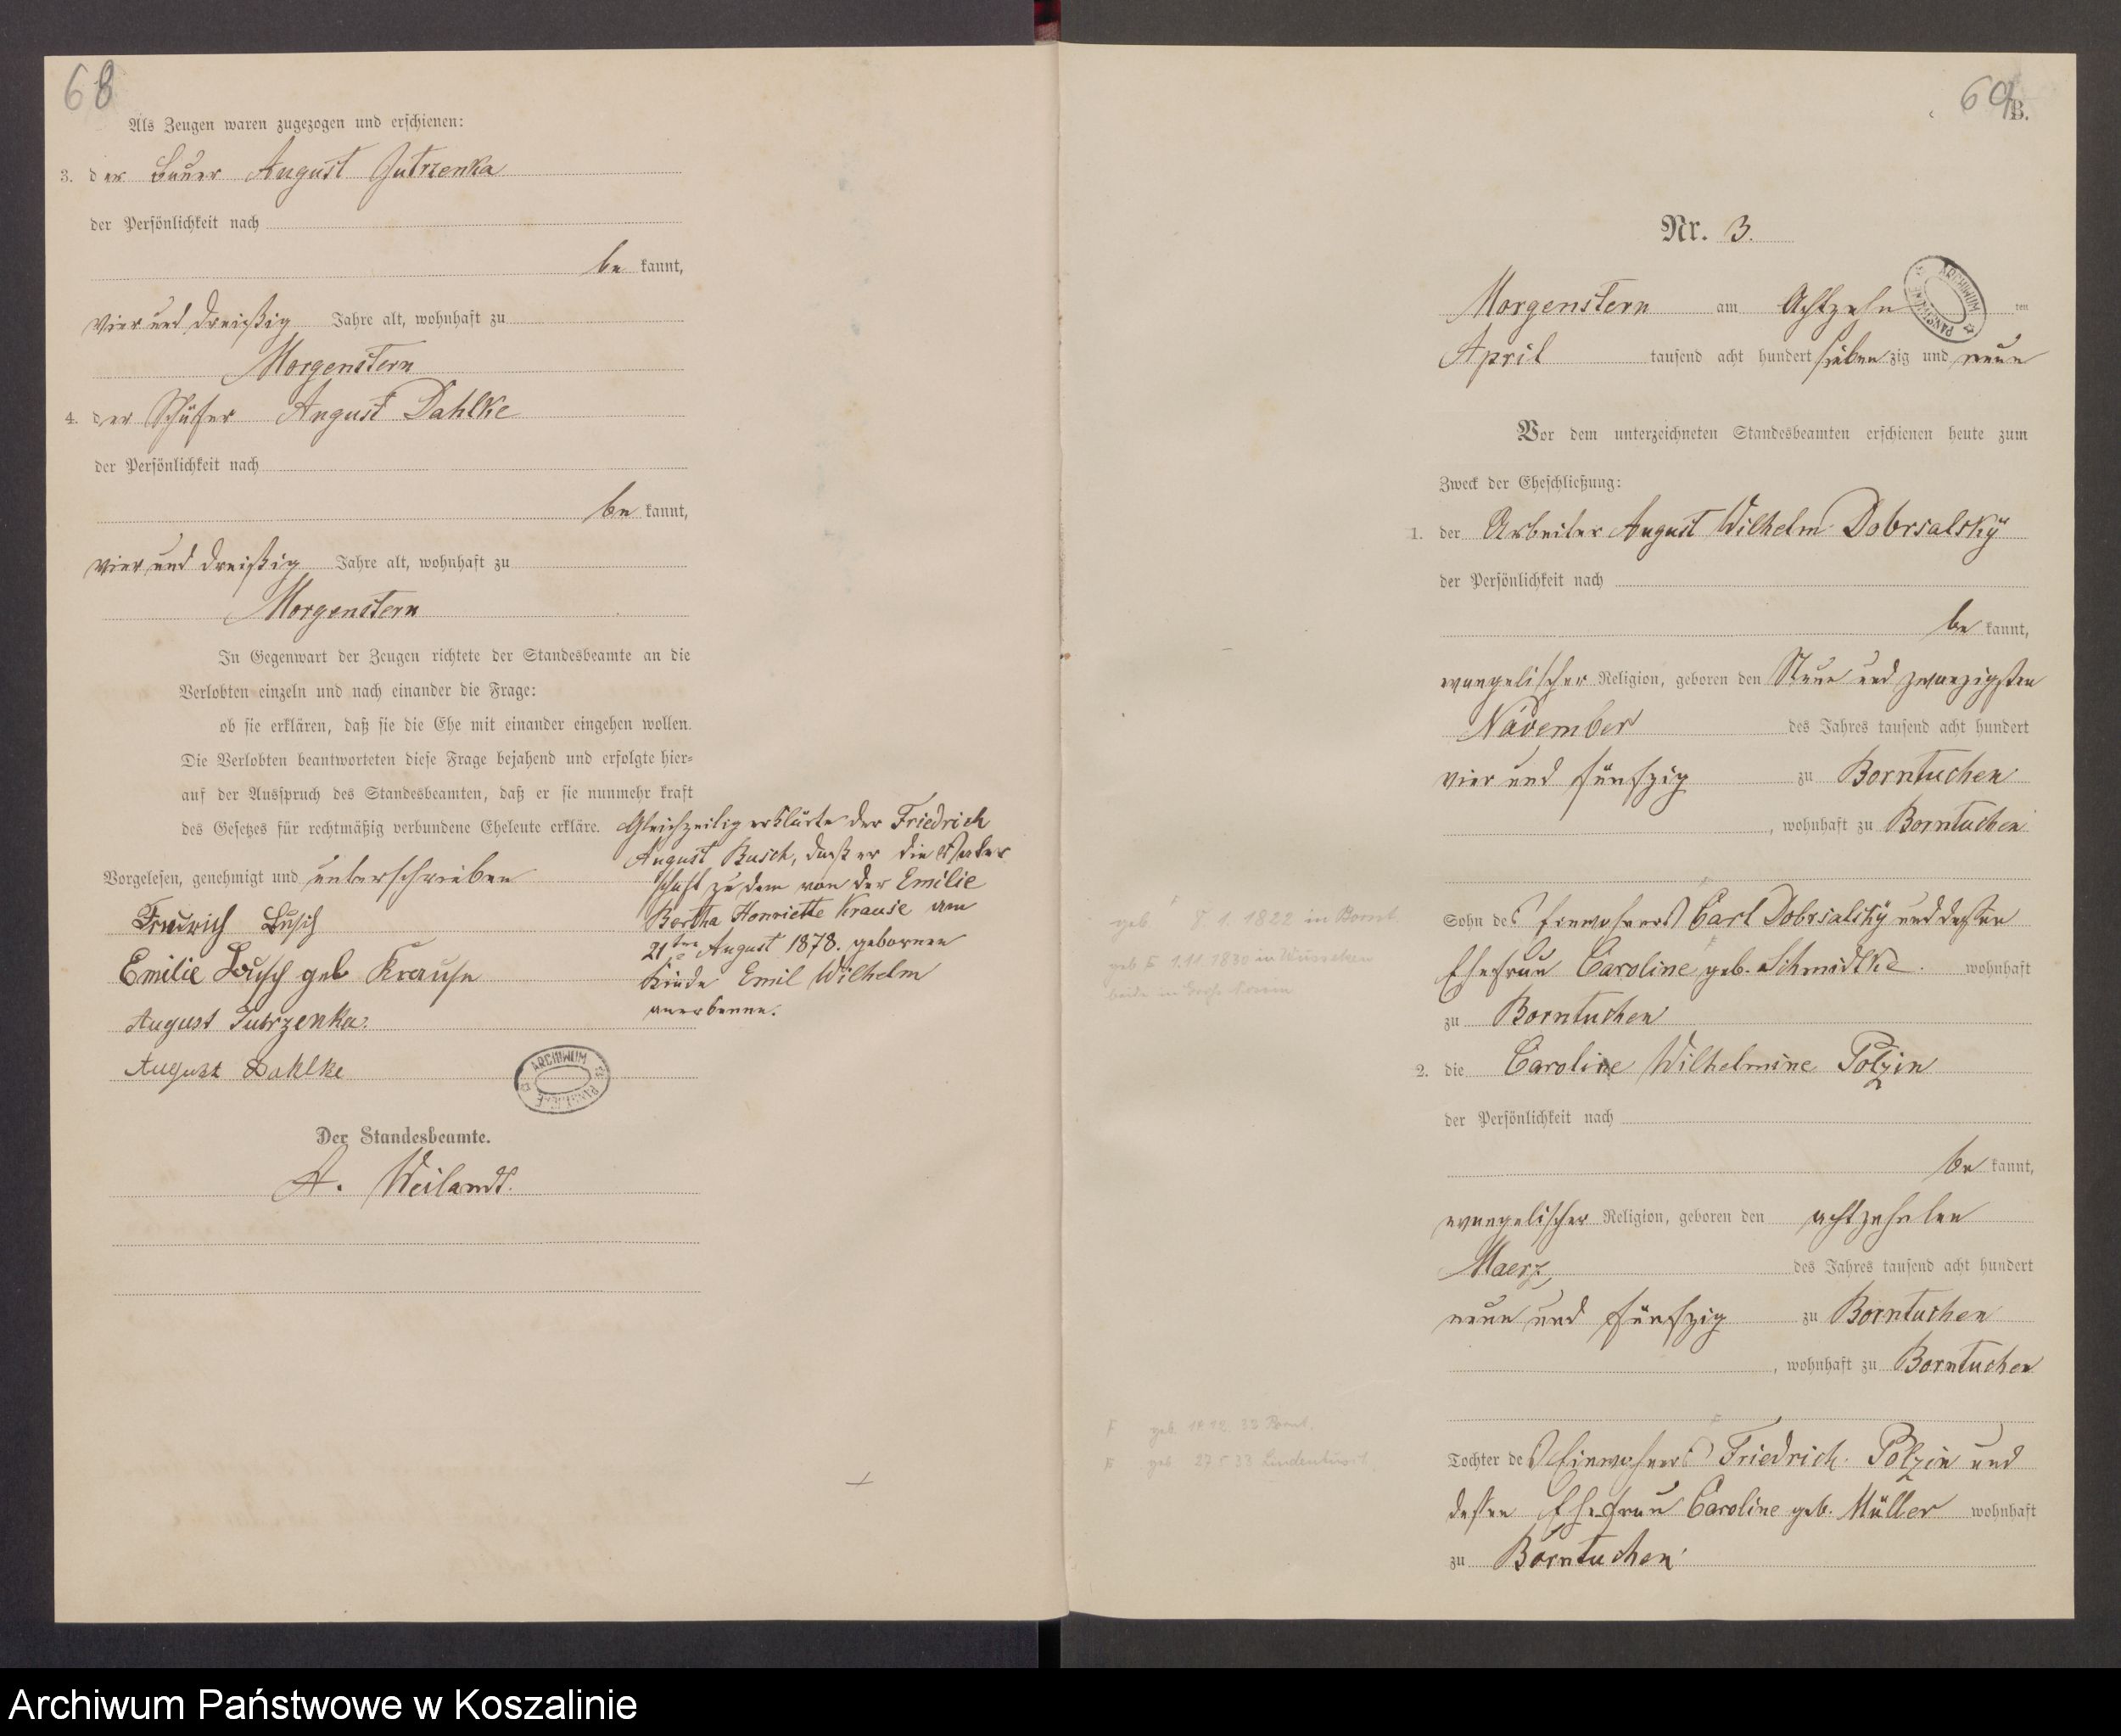 68
Als Zeugen waren zugezogen und erschienen:
3. der Bauer August Jutrzenka
der Persönlichkeit nach
be kannt,
vier und dreißig Jahre alt, wohnhaft zu
Morgenstern
4. der Schäfer August Dahlke
der Persönlichkeit nach
be kannt,
vier und dreißig Jahre alt, wohnhaft zu
Morgenstern
In Gegenwart der Zeugen richtete der Standesbeamte an die
Verlobten einzeln und nach einander die Frage:
ob sie erklären, daß sie die Ehe mit einander eingehen wollen.
Die Verlobten beantworteten diese Frage bejahend und erfolgte hier-
auf der Ausspruch des Standesbeamten, daß er sie nunmehr kraft
des Gesetzes für rechtmäßig verbundene Eheleute erkläre.
Vorgelesen, genehmigt und unterschrieben
Friedrich Busch
Emilie Busch geb Krause
August Jutrzenka.
August Dahlke
Gleichzeitig erklärte der Friedrich
August Busch, daß er die Vater
schaft zu dem von der Emilie
Bertha Henriette Krause am
21ten August 1878. geborenen
Kinde Emil Wilhelm
anerkenne.
ARCHIWUM PAŃSTWOWE
Der Standesbeamte.
A. Weilandt.
69
B.
Nr. 3.
ARCHIWUM PAŃSTWOWE
Morgenstern am Achtzehn ten
April tausend acht hundert sieben zig und neun
Vor dem unterzeichneten Standesbeamten erschienen heute zum
Zweck der Eheschließung:
1. der Arbeiter August Wilhelm Dobrsalsky
der Persönlichkeit nach
be kannt,
evangelischer Religion, geboren den Neun und zwanzigsten
November des Jahres tausend acht hundert
vier und fünfzig zu Borntuchen
, wohnhaft zu Borntuchen
geb. 8. 1. 1822 in Bornt.
geb. 1.11.1830 in
beide in
Sohn des Einwohners Carl Dobrsalsky und dessen
Ehefrau Caroline geb. Schmidtke. wohnhaft
zu Borntuchen
2. die Caroline Wilhelmine Polzin
der Persönlichkeit nach
be kannt,
evangelischer Religion, geboren den achtzehnten
Maerz des Jahres tausend acht hundert
neun und fünfzig zu Borntuchen
, wohnhaft zu Borntuchen
geb. 33 Bornt.
geb 33 Lindenbusch
Tochter des Einwohners Friedrich Polzin und
dessen Ehefrau Caroline geb. Müller wohnhaft
zu Borntuchen
Archiwum Państwowe w Koszalinie